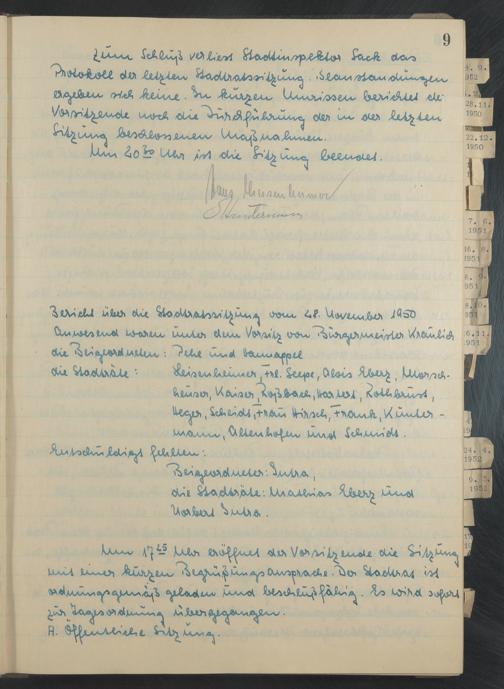 9
Zum Schluß verliest Stadtinspektor Sack das
Protokoll der letzten Stadtratssitzung. Beanstandungen
ergeben sich keine. In kurzen Umrissen berichtet der
Vorsitzende noch die Durchführung der in der letzten
Sitzung beschlossenen Maßnahmen.
Um 20 30 Uhr ist die Sitzung beendet.
Bericht über die Stadtratssitzung vom 28. November 1950
Anwesend waren unter dem Vorsitz von Bürgermeister Kräulich
die Beigeordneten: Pehe und Bamappel
die Stadträte: Heisenheimer, Frl. Seepe, Alois Eberz, Marsch-
häuser, Kaiser, Roßbach, Hartert, Rothbrust,
Heger, Scheidt, Frau Hirsch, Frank, Künter-
mann, Altenhofen und Schmidt.
Entschuldigt fehlten:
Beigeordneter: Intra,
die Stadträte: Mathias Eberz und
Norbert Intra.
Um 17 45 Uhr eröffnet der Vorsitzende die Sitzung
mit einer kurzen Begrüßungsansprache. Der Stadtrat ist
ordnungsgemäß geladen und beschlußfähig. Es wird sofort
zur Tagesordnung übergegangen.
A. Öffentliche Sitzung.
28.11.
1950
22.12.
1950
7. 6.
1951
24. 4.
1952